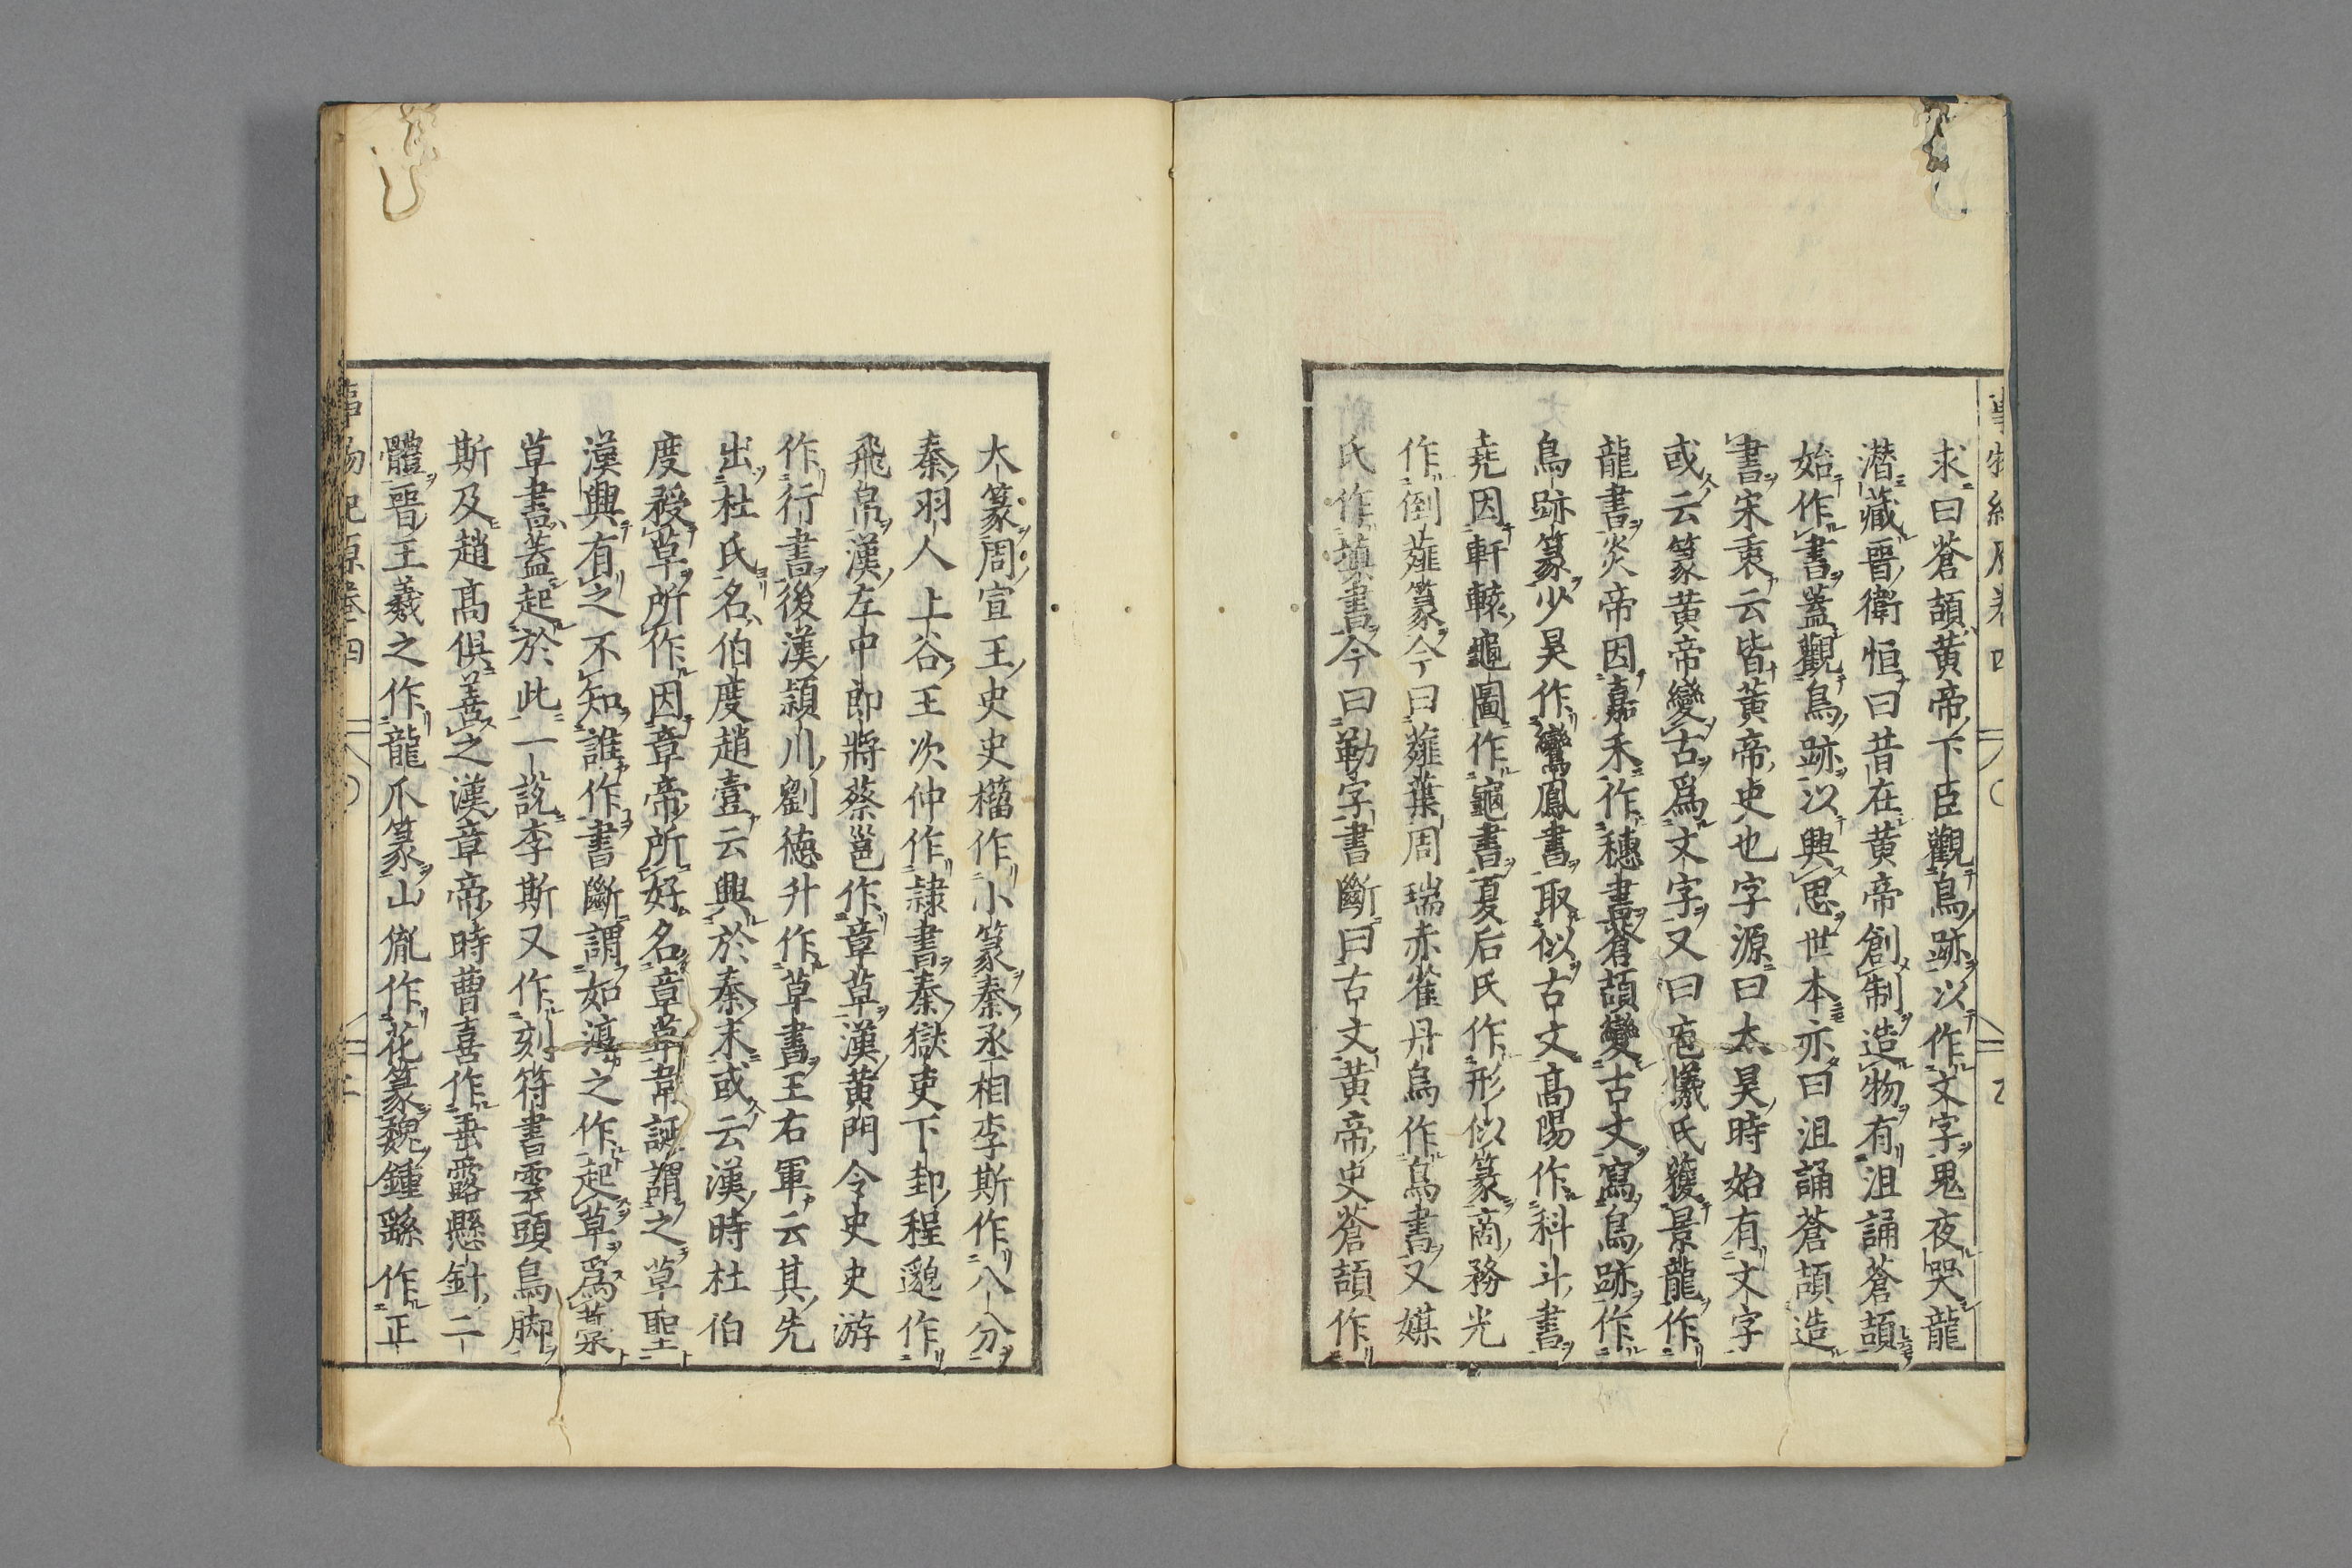 求曰蒼頡黄帝下臣觀鳥跡以作文字鬼夜哭龍
潛藏晉衛恒曰昔在黄帝創制造物有沮誦蒼頡
始作書蓋觀鳥跡以興思世本亦曰沮誦蒼頡造
書宋衷云皆黄帝史也字源曰太昊時始有文字
或云篆黄帝變古爲文字又曰庖犧氏獲景龍作
龍書炎帝因嘉禾作穗書蒼頡變古文寫鳥跡作
鳥跡篆少昊作鸞鳳書取似古文高陽作科斗書
堯因軒轅龜圖作龜書夏后氏作形似篆商務光
作倒薤篆今曰薤葉周瑞赤雀丹烏作烏書又媒
氏作塡書今曰勒字書斷曰古文黄帝史蒼頡作
大篆周宣王史史籀作小篆秦丞相李斯作八分
秦羽人上谷王次仲作隷書秦獄吏下邽程邈作
飛帛漢左中郎將蔡邕作章草漢黄門令史史游
作行書後漢潁川劉德升作草書王右軍云其先
出杜氏名伯度趙壹云興於秦末或云漢時杜伯
度授草所作因章帝所好名章草韋誕謂之草聖
漢興有之不知誰作書斷謂如淳之作起草爲藁
草書蓋起於此一說李斯又作刻符書雲頭鳥脚
斯及趙高俱善之漢章帝時曹喜作垂露懸針二
體晉王羲之作龍爪篆山胤作花篆魏鍾繇作正
事物紀原卷四